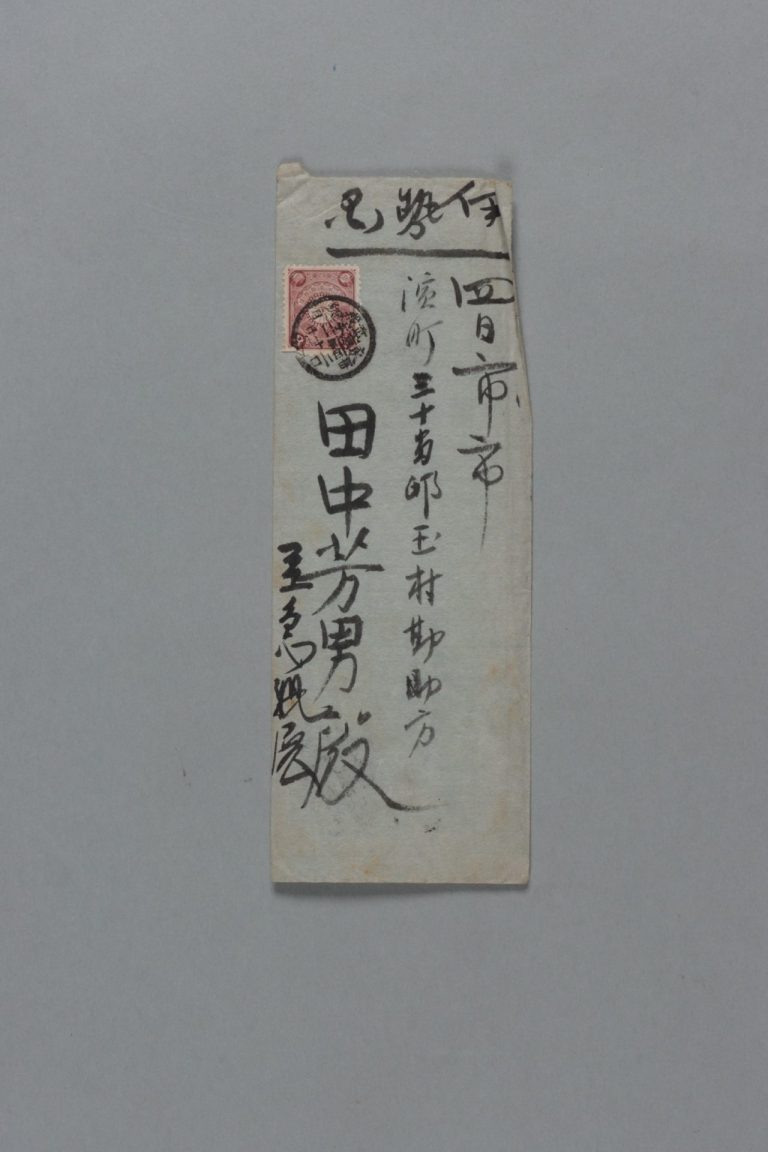 伊勢国
四日市市
濱町三十番邸玉村勘助方
田中芳男殿
至急親展